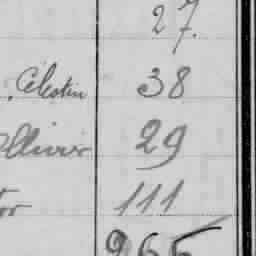 27.
, Célestin 38
Ollivier 29
tor 111
965